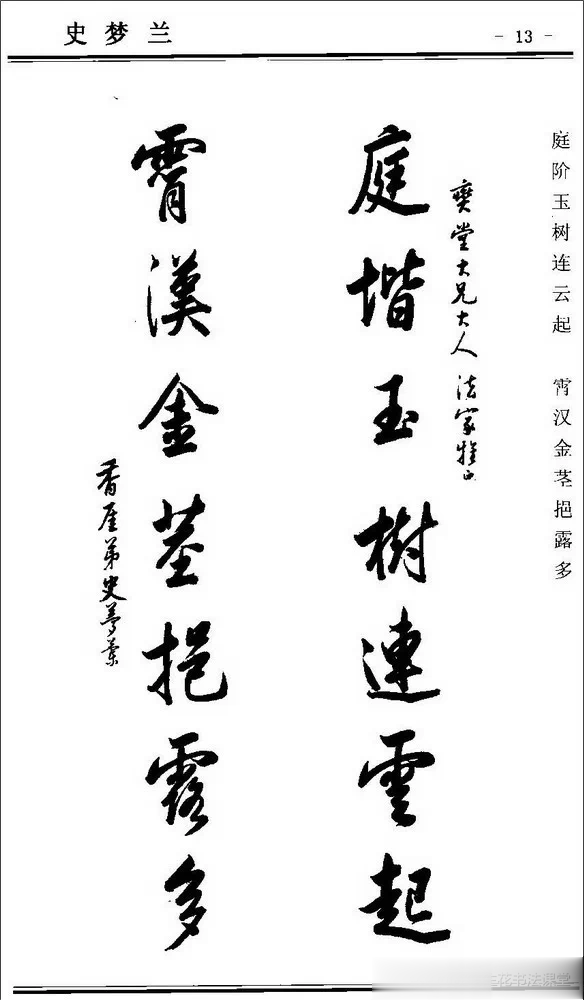 史梦兰
- 13 -
庭阶玉树连云起 霄汉金茎挹露多
奭堂大兄大人 法家雅正
庭堦玉樹連雲起
霄漢金莖挹露多
香厓弟史夢蘭